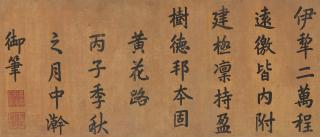 伊犁二萬程
遠徼皆內附
建極凜持盈
樹德邦本固
黃花路
丙子季秋
之月中澣
御筆